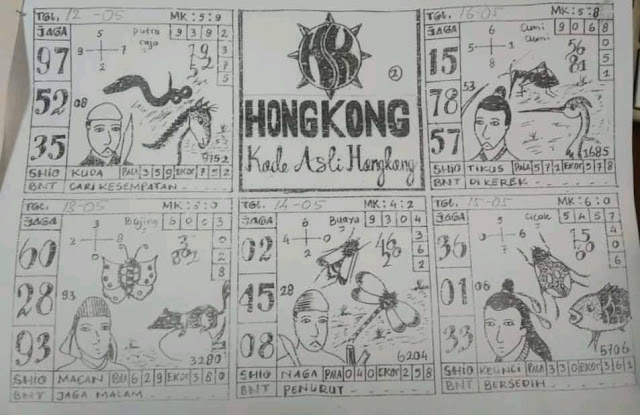 TGL. 12-05 MK:5:9
JAGA
97
52
35
5
9 7
2
putra
raja
9 3 9 2
19
52
08
9752
SHIO KUDA PALA 3 5 9 EKOR 7 5 2
BNT CARI KESEMPATAN
HK
2
HONGKONG
Kode Asli Hongkong
TGL. 16-05 MK:5:8
JAGA
15
78
57
6
5 1
8
Cumi
Cumi
9 0 6 8
0
5
1
56
81
53
1685
SHIO TIKUS PALA 5 7 1 EKOR 5 7 8
BNT DI KEREK
TGL. 13-05
JAGA
60
28
93
3
2 8
0
93
3280
SHIO MACAN 6 2 9 EKOR 3 8 0
BNT JAGA MALAM
TGL. 14-05 MK:4:2
JAGA
02
45
08
6
4 2
0
Buaya
9 3 0 4
3
6
2
46
20
28
6204
SHIO NAGA PALA 0 4 0 EKOR 2 5 8
BNT PENURUT
TGL. 15-05 MK:6:0
JAGA
36
01
33
5
0 6
7
Cicak
5 4 5 7
4
0
6
15
08
5706
SHIO KELINCI PALA 3 3 0 EKOR 3 6 1
BNT BERSEDIH